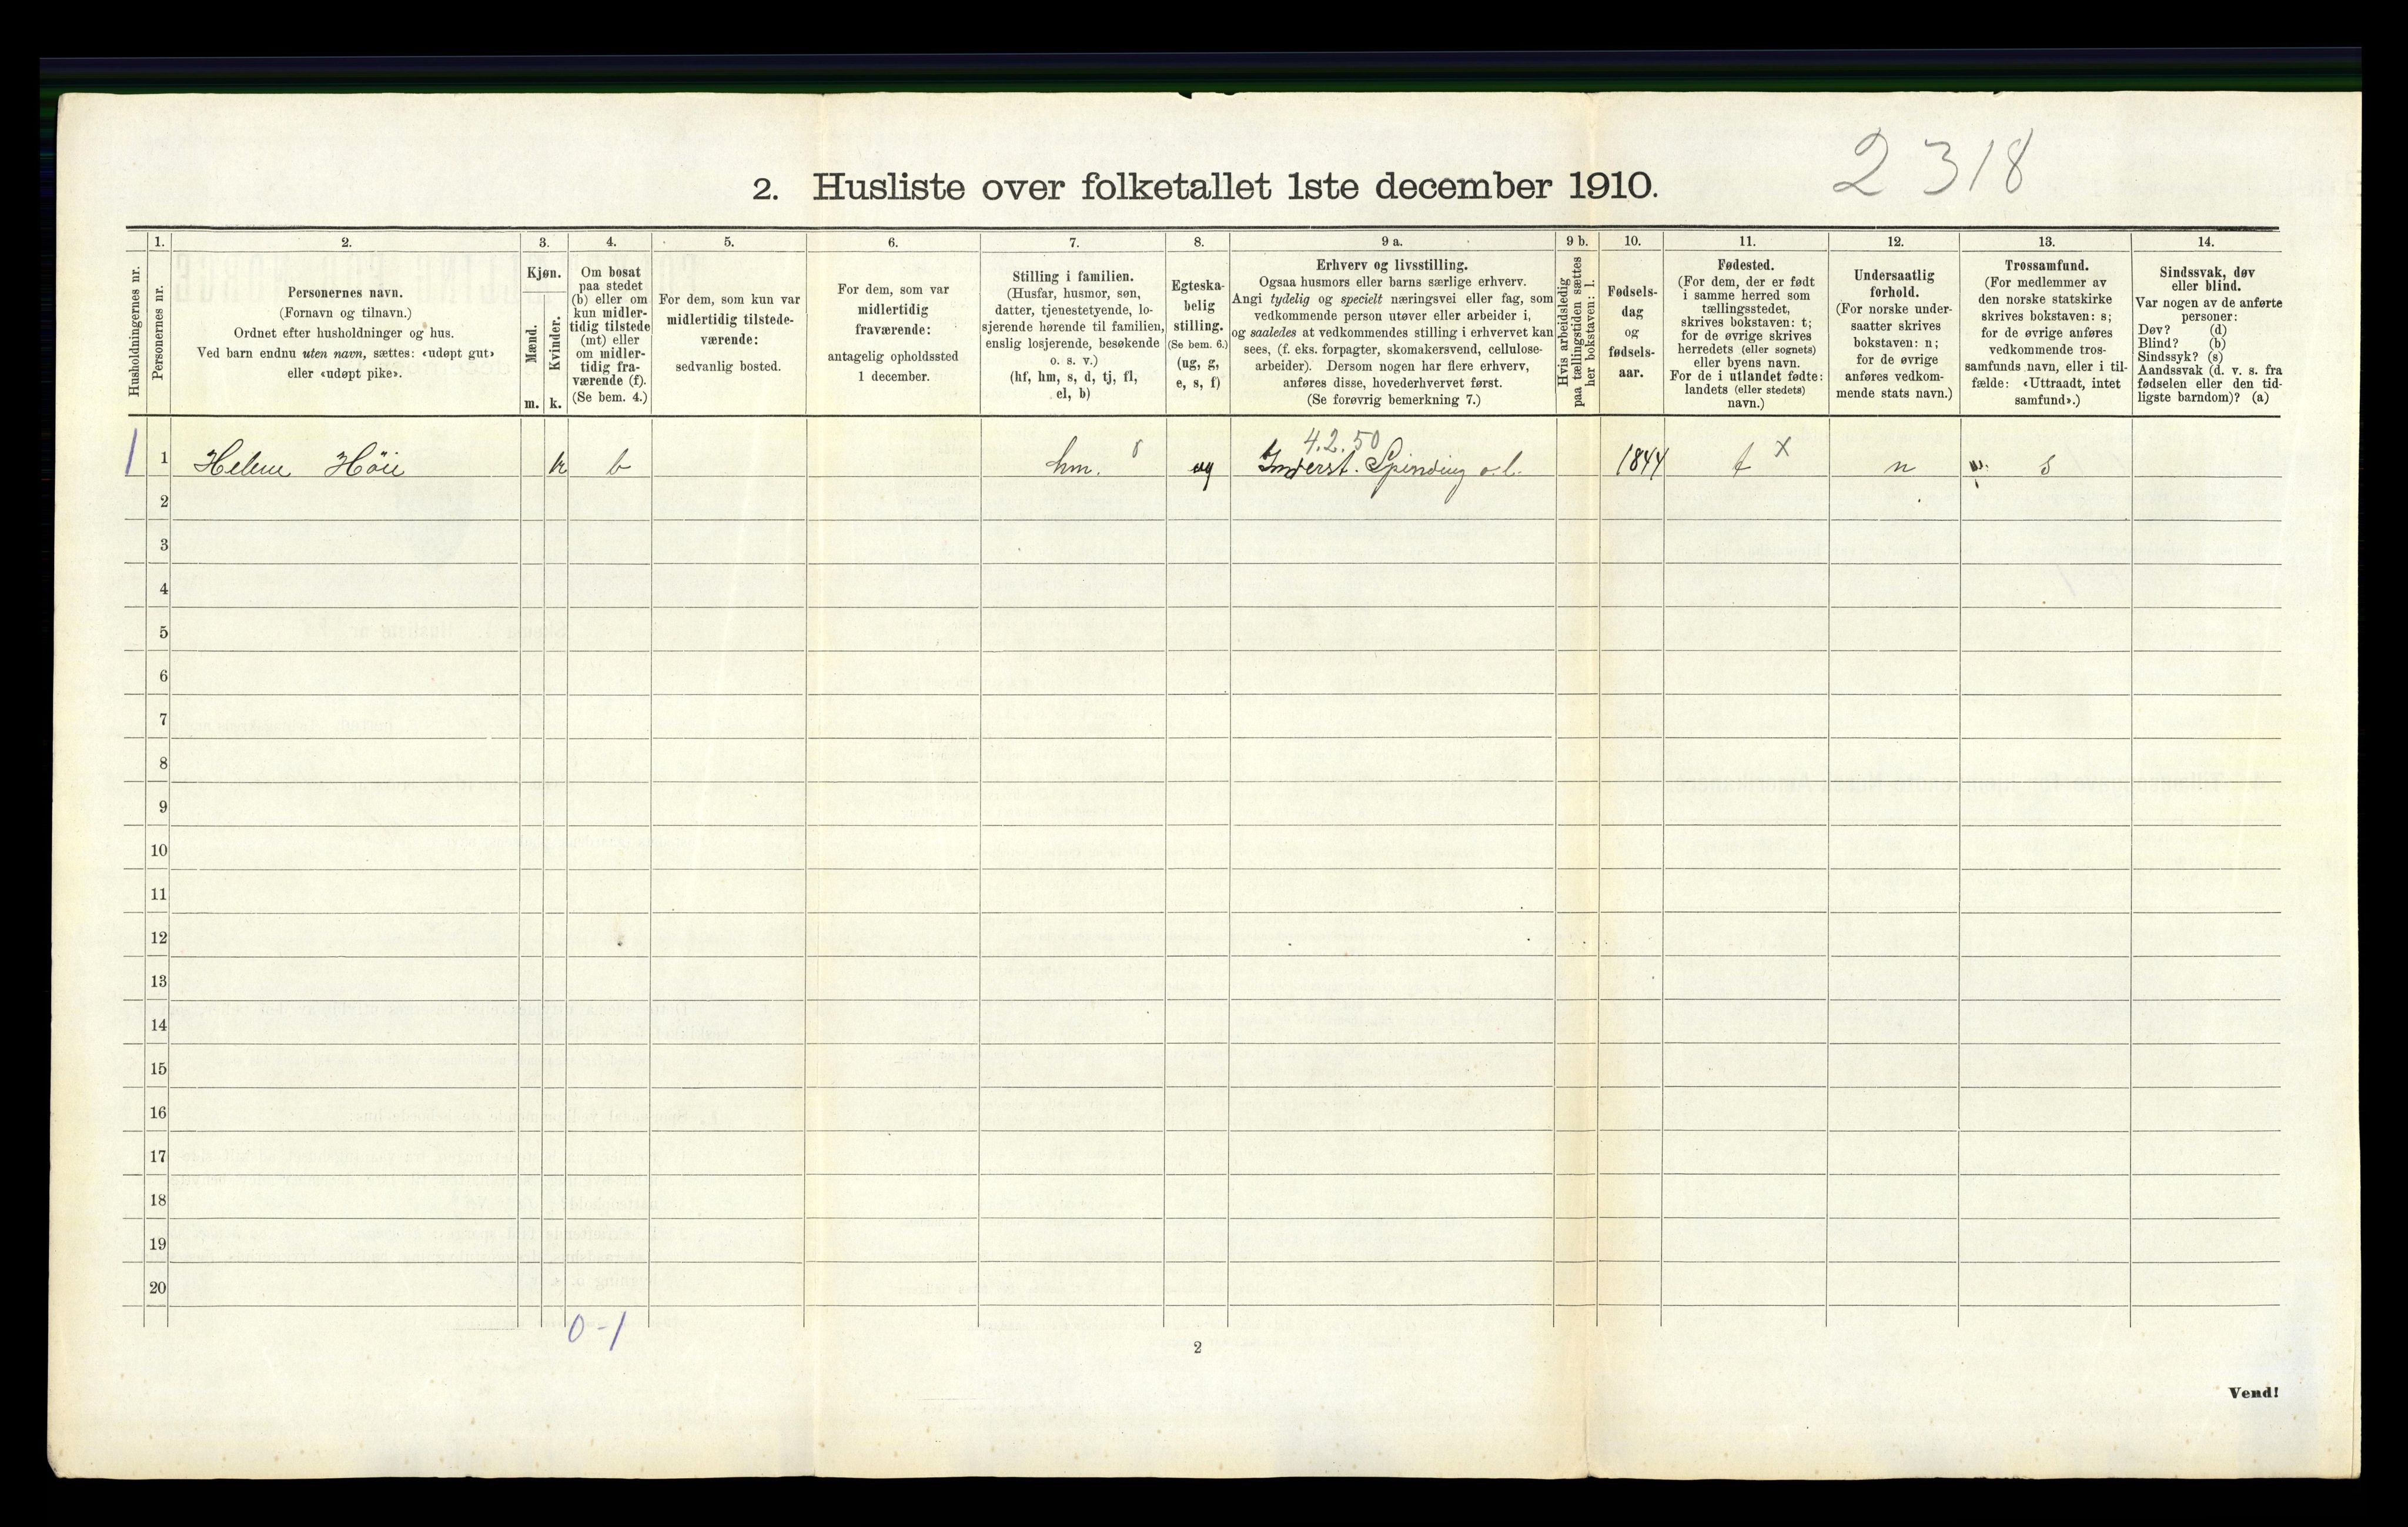 2318
2. Husliste over folketallet 1ste december 1910.
Husholdningernes nr.
1.
Personernes nr.
2.
Personernes navn.
(Fornavn og tilnavn.)
Ordnet efter husholdninger og hus.
Ved barn endnu uten navn, sættes: «udøpt gut»
eller «udøpt pike».
3.
Kjøn.
Mænd.
Kvinder.
m. k.
4.
Om bosat
paa stedet
(b) eller om
kun midler-
tidig tilstede
(mt) eller
om midler-
tidig fra-
værende (f).
(Se bem. 4.)
5.
For dem, som kun var
midlertidig tilstede-
værende:
sedvanlig bosted.
6.
For dem, som var
midlertidig
fraværende:
antagelig opholdssted
1 december.
7.
Stilling i familien.
(Husfar, husmor, søn,
datter, tjenestetyende, lo-
sjerende hørende til familien,
enslig losjerende, besøkende
o. s. v.)
(hf, hm, s, d, tj, fl,
el, b)
8.
Egteska-
belig
stilling.
(Se bem. 6.)
(ug, g,
e, s, f)
9 a.
Erhverv og livsstilling.
Ogsaa husmors eller barns særlige erhverv.
Angi tydelig og specielt næringsvei eller fag, som
vedkommende person utøver eller arbeider i,
og saaledes at vedkommendes stilling i erhvervet kan
sees, (f. eks. forpagter, skomakersvend, cellulose-
arbeider). Dersom nogen har flere erhverv,
anføres disse, hovederhvervet først.
(Se forøvrig bemerkning 7.)
9 b.
Hvis arbeidsledig
paa tællingstiden sættes
her bokstaven: l.
10.
Fødsels-
dag
og
fødsels-
aar.
11.
Fødested.
(For dem, der er født
i samme herred som
tællingsstedet,
skrives bokstaven: t;
for de øvrige skrives
herredets (eller sognets)
eller byens navn.
For de i utlandet fødte:
landets (eller stedets)
navn.)
12.
Undersaatlig
forhold.
(For norske under-
saatter skrives
bokstaven: n;
for de øvrige
anføres vedkom-
mende stats navn.)
13.
Trossamfund.
(For medlemmer av
den norske statskirke
skrives bokstaven: s;
for de øvrige anføres
vedkommende tros-
samfunds navn, eller i til-
fælde: «Uttraadt, intet
samfund».)
14.
Sindssvak, døv
eller blind.
Var nogen av de anførte
personer:
Døv? (d)
Blind? (b)
Sindssyk? (s)
Aandssvak (d. v. s. fra
fødselen eller den tid-
ligste barndom)? (a)
4.2.50
1 1 Helene Höie k b hm. ug Inderst. Spinding o.l. 1844 t x n s
2
3
4
5
6
7
8
9
10
11
12
13
14
15
16
17
18
19
20
0-1
2
Vend!